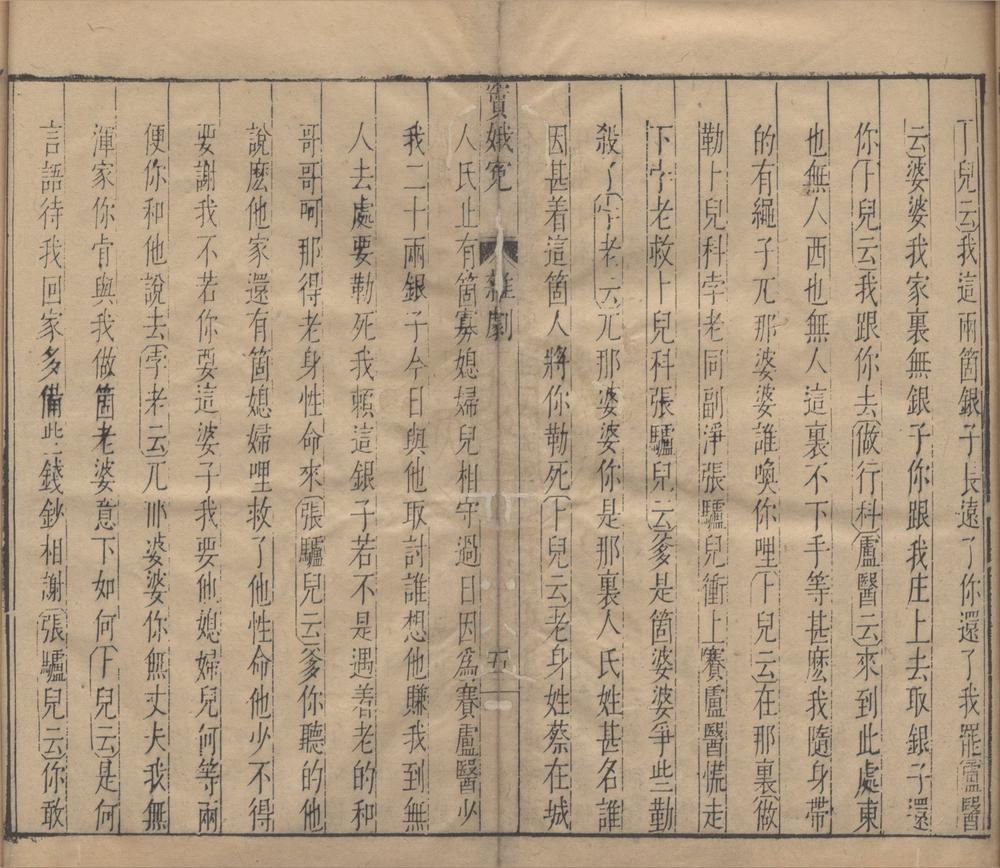 卜兒云我這兩箇銀子長遠了你還了我罷盧醫
云婆婆我家裏無銀子你跟我庄上去取銀子還
你卜兒云我跟你去做行科盧醫云來到此處東
也無人西也無人這裏不下手等甚麽我隨身帶
的有繩子兀那婆婆誰喚你哩卜兒云在那裏做
勒卜兒科孛老同副淨張驢兒衝上賽盧醫慌走
下孛老救卜兒科張驢兒云爹是箇婆婆爭些勒
殺了孛老云兀那婆婆你是那裏人氏姓甚名誰
因甚着這箇人將你勒死卜兒云老身姓蔡在城
竇娥冤 雜劇 五
人氏止有箇寡媳婦兒相守過日因爲賽盧醫少
我二十兩銀子今日與他取討誰想他賺我到無
人去處要勒死我賴這銀子若不是遇着老的和
哥哥呵那得老身性命來張驢兒云爹你聽的他
說麽他家還有箇媳婦哩救了他性命他少不得
要謝我不若你要這婆子我要他媳婦兒何等兩
便你和他說去孛老云兀那婆婆你無丈夫我無
渾家你肯與我做箇老婆意下如何卜兒云是何
言語待我回家多備些錢鈔相謝張驢兒云你敢